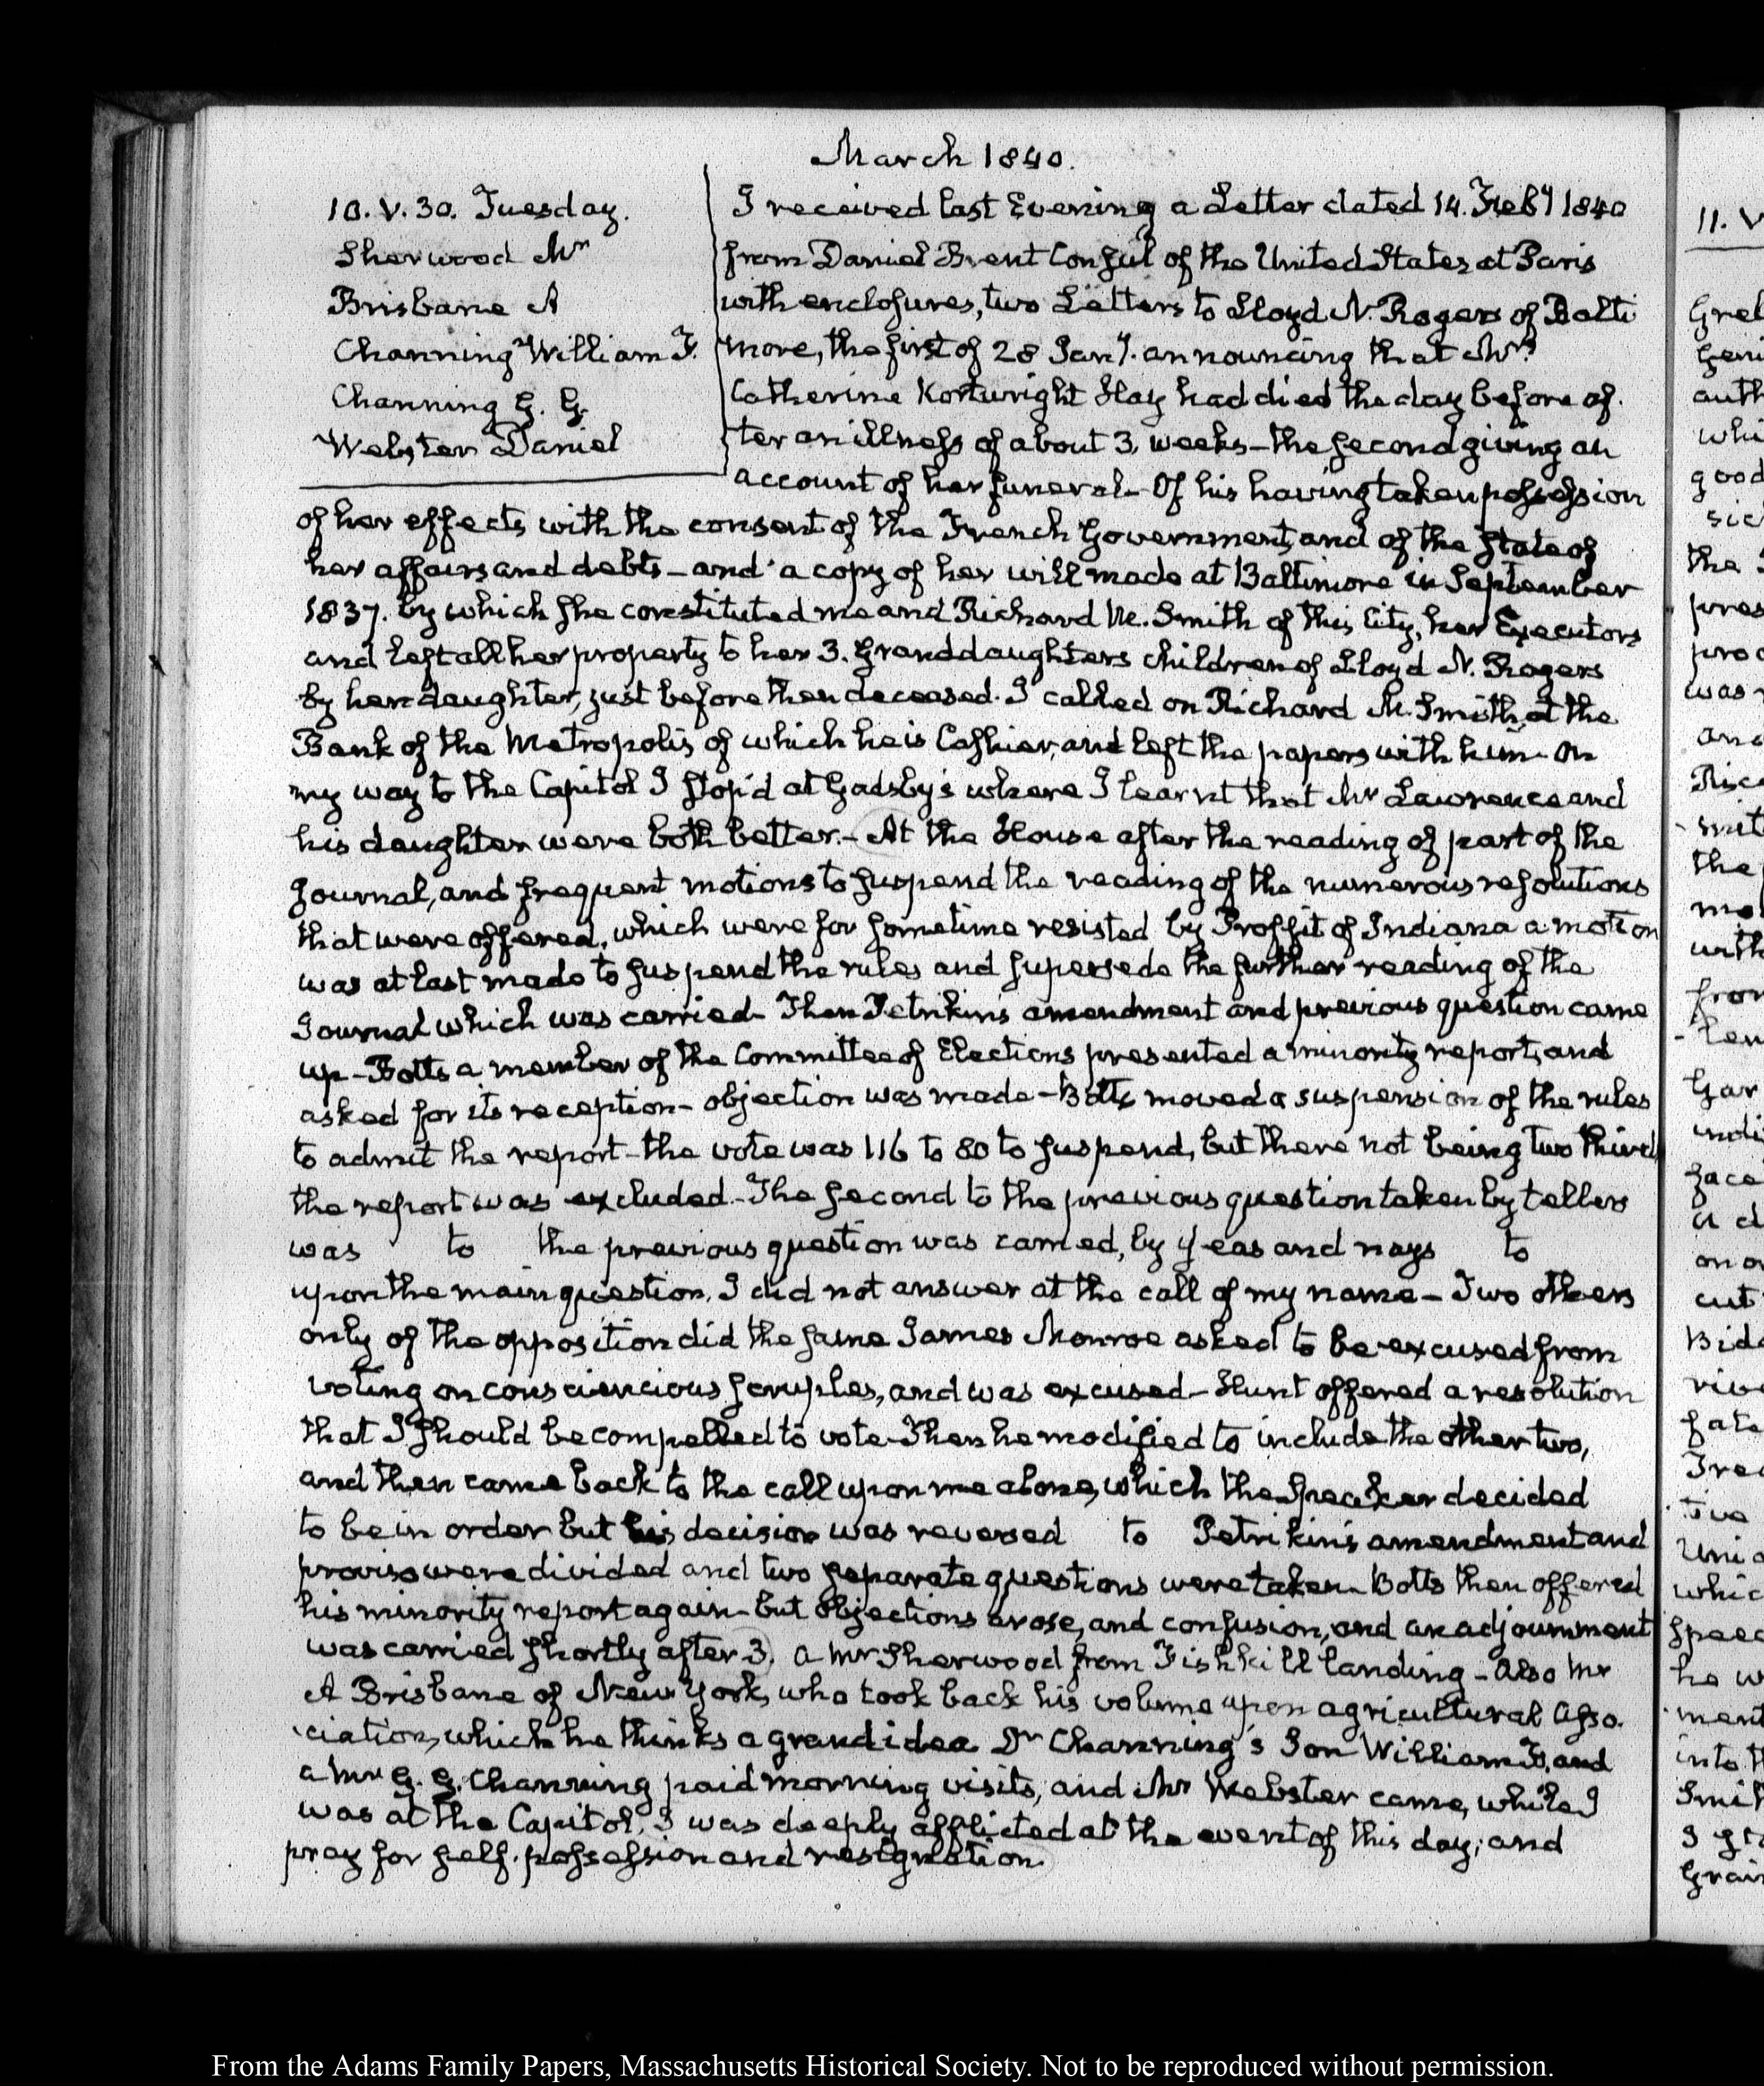 March 1840.
10. V. 30. Tuesday.
Sherwood Mr
Brisbane A
Channing William F.
Channing G. G.
Webster Daniel
I received last Evening a Letter dated 14. Feby 1840
from Daniel Brent Consul of the United States at Paris
with enclosures, two Letters to Lloyd N. Rogers of Balti
more, the first of 28 Jany. announcing that Mrs
Catherine Kortwright Hay had died the day before af-
ter an illness of about 3. weeks—the second giving an
account of her funeral—Of his having taken possession
of her effects with the consent of the French Government, and of the state of
her affairs and debts—and a copy of her will made at Baltimore in September
1837. by which she constituted me and Richard M. Smith of this City, her Executors
and left all her property to her 3. Granddaughters children of Lloyd N. Rogers
by her daughter, just before then deceased. I called on Richard M. Smith, at the
Bank of the Metropolis of which he is Cashier, and left the papers with him—On
my way to the Capitol I stop'd at Gadsby's where I learnt that Mr Lawrence and
his daughter were both better.—At the House after the reading of part of the
Journal, and frequent motions to suspend the reading of the numerous resolutions
that were offered, which were for sometime resisted by Proffit of Indiana a motion
was at last made to suspend the rules and supersede the further reading of the
Journal which was carried—Then Petrikin's amendment and previous question came
up—Botts a member of the Committee of Elections presented a minority report, and
asked for its reception—objection was made—Botts moved a suspension of the rules
to admit the report—the vote was 116 to 80 to suspend, but there not being two thirds
the report was excluded—The second to the previous question taken by tellers
was to the previous question was carried, by yeas and nays to
upon the main question, I did not answer at the call of my name—Two others
only of the opposition did the same James Monroe asked to be excused from
voting on consciencious scruples, and was excused—Hunt offered a resolution
that I should be compelled to vote—Then he modified to include the other two,
and then came back to the call upon me alone, which the Speaker decided
to be in order but his decision was reversed to Petrikin's amendment and
proviso were divided and two separate questions were taken—Botts then offered
his minority report again—but objections arose, and confusion, and an adjournment
was carried shortly after 3. a Mr Sherwood from Fishkill landing—Also Mr
A Brisbane of New York, who took back his volume upon agricultural Asso-
ciation, which he thinks a grand idea Dr Channing's Son William F, and
a Mr G. G. Channing paid morning visits, and Mr Webster came, while I
was at the Capitol. I was deeply afflicted at the event of this day; and
pray for self-possession and resignation.
From the Adams Family Papers, Massachusetts Historical Society. Not to be reproduced without permission.